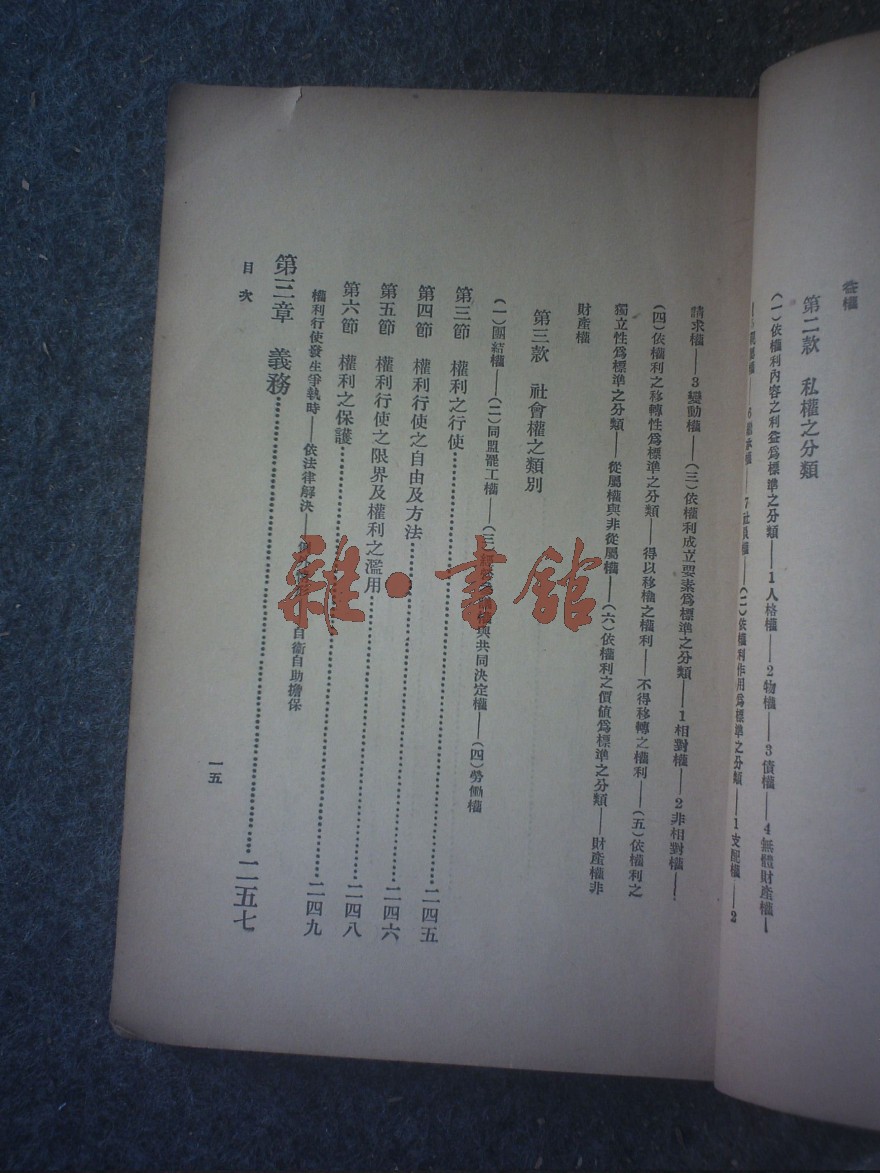 益權
第二款　私權之分類
(一)依權利內容之利益爲標準之分類——1人格權——2物權——3債權——4無體財產權—
7社員權——(二)依權利作用爲標準之分類——1支配權——2
請求權——3變動權——(三)依權利成立要素爲標準之分類——1相對權——2非相對權——
(四)依權利之移轉性爲標準之分類——得以移轉之權利——不得移轉之權利——(五)依權利之
獨立性爲標準之分類——從屬權與非從屬權——(六)依權利之價値爲標準之分類——財產權非
財產權
第三款　社會權之類別
(一)團結權——(二)同盟罷工權——(三)與共同決定權——(四)勞働權
第三節　權利之行使……二四五
第四節　權利行使之自由及方法……二四六
第五節　權利行使之限界及權利之濫用……二四八
第六節　權利之保護……二四九
權利行使發生爭執時——依法律解決——自衞自助擔保
第三章　義務……二五七
目次
一五
雜·書館